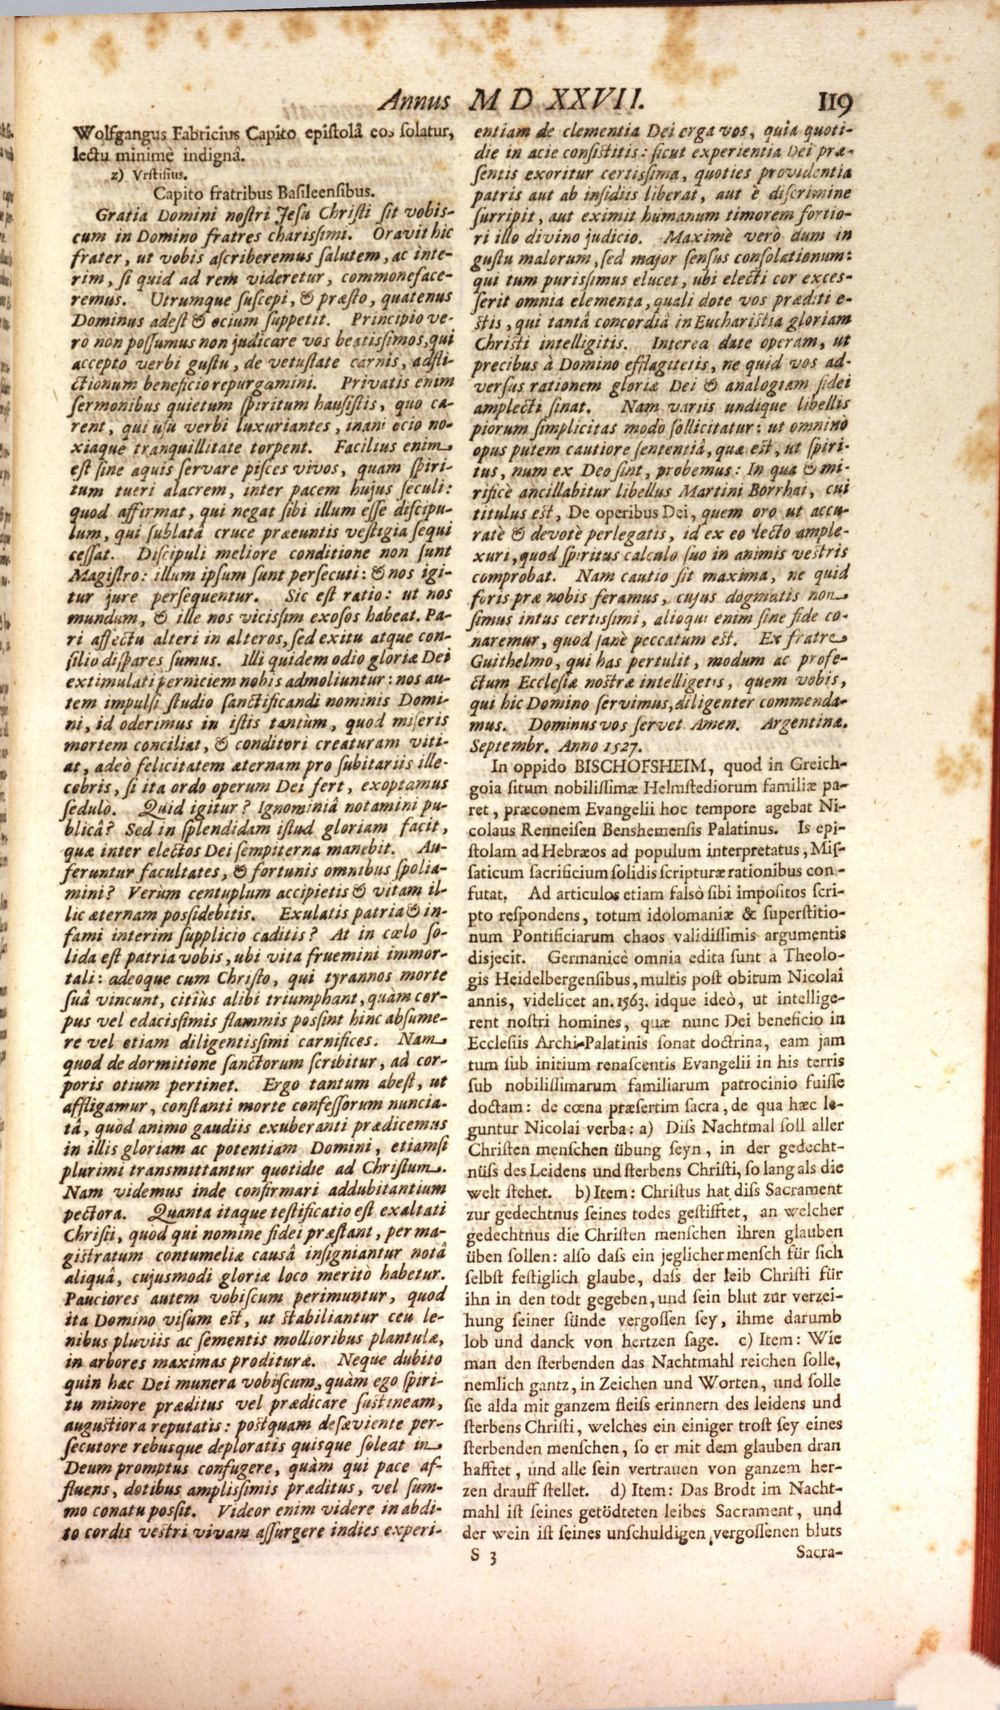 Annus M D XXVII. 119
Wolfgangus Fabricius Capito epistolâ eos solatur,
lectu minimè indignâ.
z) Vrstisius.
Capito fratribus Basileensibus.
Gratia Domini nostri Jesu Christi sit vobis-
cum in Domino fratres charissimi. Oravit hic
frater, ut vobis ascriberemus salutem, ac inte-
rim, si quid ad rem videretur, commoneface-
remus. Utrumque suscepi, & præsto, quatenus
Dominus adest & ocium suppetit. Principio ve-
rò non possumus non judicare vos beatissimos, qui
accepto verbi gustu, de vetustate carnis, adfli-
ctionum beneficio repurgamini. Privatis enim
sermonibus quietum spiritum hausistis, quo ca-
rent, qui usu verbi luxuriantes, inani ocio no-
xiaque tranquillitate torpent. Facilius enim
est sine aquis servare pisces vivos, quam spiri-
tum tueri alacrem, inter pacem hujus seculi:
quod affirmat, qui negat sibi illum esse discipu-
lum, qui sublatâ cruce præeuntis vestigia sequi
cessat. Discipuli meliore conditione non sunt
Magistro: illum ipsum sunt persecuti: & nos igi-
tur jure persequentur. Sic est ratio: ut nos
mundum, & ille nos vicissim exosos habeat. Pa-
ri affectu alteri in alteros, sed exitu atque con-
silio dispares sumus. Illi quidem odio gloriæ Dei
extimulati perniciem nobis admoliuntur: nos au-
tem impulsi studio sanctificandi nominis Domi-
ni, id oderimus in istis tantùm, quod miseris
mortem conciliat, & conditori creaturam viti-
at, adeò felicitatem æternam pro subitariis ille-
cebris, si ita ordo operum Dei fert, exoptamus
sedulò. Quid igitur? Ignominiâ notamini pu-
blicâ? Sed in splendidam istud gloriam facit,
quæ inter electos Dei sempiterna manebit. Au-
feruntur facultates, & fortunis omnibus spolia-
mini? Verùm centuplum accipietis & vitam il-
lic æternam possidebitis. Exulatis patria & in-
fami interim supplicio caditis? At in cœlo so-
lida est patria vobis, ubi vita fruemini immor-
tali: adeoque cum Christo, qui tyrannos morte
suâ vincunt, citiùs alibi triumphant, quàm cor-
pus vel edacissimis flammis possint hinc absume-
re vel etiam diligentissimi carnifices. Nam
quod de dormitione sanctorum scribitur, ad cor-
poris otium pertinet. Ergo tantum abest, ut
affligamur, constanti morte confessorum nuncia-
tâ, quòd animo gaudiis exuberanti prædicemus
in illis gloriam ac potentiam Domini, etiamsi
plurimi transmittantur quotidie ad Christum.
Nam videmus inde confirmari addubitantium
pectora. Quanta itaque testificatio est exaltati
Christi, quod qui nomine fidei præstant, per ma-
gistratum contumeliæ causâ insigniantur notâ
aliquâ, cujusmodi gloriæ loco meritò habetur.
Pauciores autem vobiscum perimuntur, quod
ita Domino visum est, ut stabiliantur ceu le-
nibus pluviis ac sementis mollioribus plantulæ,
in arbores maximas proditura. Neque dubito
quin hæc Dei munera vobiscum, quàm ego spiri-
tu minore præditus vel prædicare sustineam,
augustiora reputatis: postquam desæviente per-
secutore rebusque deploratis quisque soleat in
Deum promptus confugere, quàm qui pace af-
fluens, dotibus amplissimis præditus, vel sum-
mo conatu possit. Videor enim videre in abdi-
to cordis vestri vivam assurgere indies experi-
entiam de clementia Dei erga vos, quia quoti-
die in acie consistitis: sicut experientia Dei præ-
sentis exoritur certissima, quoties providentia
patris aut ab insidiis liberat, aut è discrimine
surripit, aut eximit humanum timorem fortio-
ri illo divino judicio. Maximè verò dum in
gustu malorum, sed major sensus consolationum:
qui tum purissimus elucet, ubi electi cor exces-
serit omnia elementa, quali dote vos præditi e-
stis, qui tantâ concordiâ in Eucharistia gloriam
Christi intelligitis. Interea date operam, ut
precibus à Domino efflagitetis, ne quid vos ad-
versus rationem gloriæ Dei & analogiam fidei
amplecti sinat. Nam variis undique libellis
piorum simplicitas modo sollicitatur: ut omnino
opus putem cautiore sententiâ, quæ est, ut spiri-
tus, num ex Deo sint, probemus: In qua & mi-
rificè ancillabitur libellus Martini Borrhai, cui
titulus est, De operibus Dei, quem oro ut accu-
ratè & devotè perlegatis, id ex eo lecto ample-
xuri, quod spiritus calculo suo in animis vestris
comprobat. Nam cautio sit maxima, ne quid
foris præ nobis feramus, cujus dogmatis non
simus intus certissimi, alioqui enim sine fide co-
naremur, quod sanè peccatum est. Ex fratre
Guithelmo, qui has pertulit, modum ac profe-
ctum Ecclesiæ nostræ intelligetis, quem vobis,
qui hic Domino servimus, diligenter commenda-
mus. Dominus vos servet Amen. Argentinæ.
Septembr. Anno 1527.
In oppido BISCHOFSHEIM, quod in Greich-
goia situm nobilissimæ Helmstediorum familiæ pa-
ret, præconem Evangelii hoc tempore agebat Ni-
colaus Renneisen Benshemensis Palatinus. Is epi-
stolam ad Hebræos ad populum interpretatus, Mis-
saticum sacrificium solidis scripturæ rationibus con-
futat. Ad articulos etiam falsò sibi impositos scri-
pto respondens, totum idolomaniæ & superstitio-
num Pontificiarum chaos validissimis argumentis
disjecit. Germanicè omnia edita sunt à Theolo-
gis Heidelbergensibus, multis post obitum Nicolai
annis, videlicet an. 1563. idque ideò, ut intellige-
rent nostri homines, quæ nunc Dei beneficio in
Ecclesiis Archi-Palatinis sonat doctrina, eam jam
tum sub initium renascentis Evangelii in his terris
sub nobilissimarum familiarum patrocinio fuisse
doctam: de cœna præsertim sacra, de qua hæc le-
guntur Nicolai verba: a) Diss Nachtmal soll aller
Christen menschen übung seyn, in der gedecht-
nüss des Leidens und sterbens Christi, so lang als die
welt stehet. b) Item: Christus hat diss Sacrament
zur gedechtnus seines todes gestifftet, an welcher
gedechtnus die Christen menschen ihren glauben
üben sollen: also dass ein jeglicher mensch für sich
selbst festiglich glaube, dass der leib Christi für
ihn in den todt gegeben, und sein blut zur verzei-
hung seiner sünde vergossen sey, ihme darumb
lob und danck von hertzen sage. c) Item: Wie
man den sterbenden das Nachtmahl reichen solle,
nemlich gantz, in Zeichen und Worten, und solle
sie alda mit ganzem fleiss erinnern des leidens und
sterbens Christi, welches ein einiger trost sey eines
sterbenden menschen, so er mit dem glauben dran
hafftet, und alle sein vertrauen von ganzem her-
zen drauff stellet. d) Item: Das Brodt im Nacht-
mahl ist seines getödteten leibes Sacrament, und
der wein ist seines unschuldigen vergossenen bluts
S 3 Sacra-